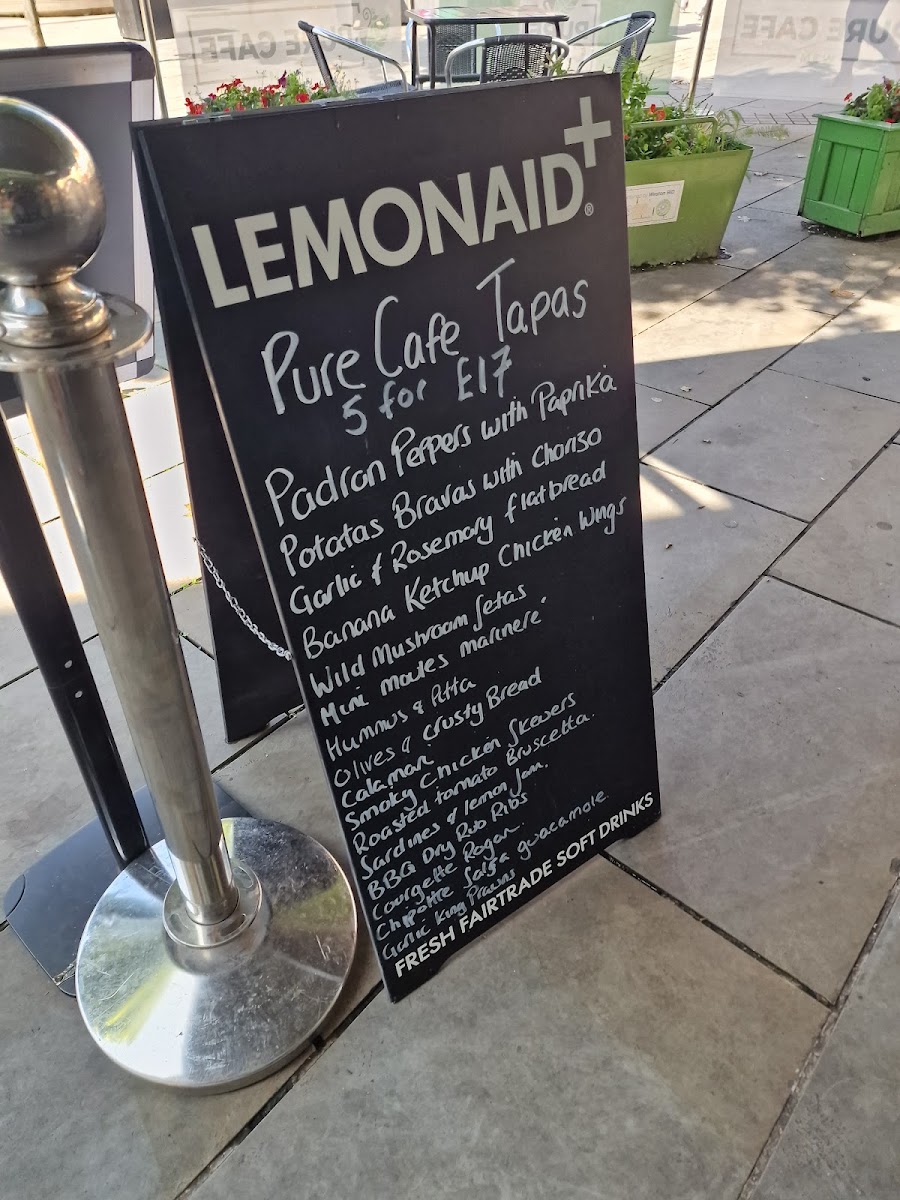 PURE CAFE
URE CAFE
LEMONAID+®
Pure Cafe Tapas
5 for £17
Padron Peppers with Paprika
Potatas Bravas with Chorizo
Garlic & Rosemary flatbread
Banana Ketchup Chicken Wings
Wild Mushroom fetas
Mini moules marinere
Hummus & Pitta
Olives & Crusty Bread
Calamari
Smoky Chicken Skewers
Roasted tomato Bruscetta.
Sardines & lemon Jam.
BBQ Dry Rub Ribs
Courgette Rogan.
Chipotle Salsa guacamole
Garlic King Prawns
FRESH FAIRTRADE SOFT DRINKS